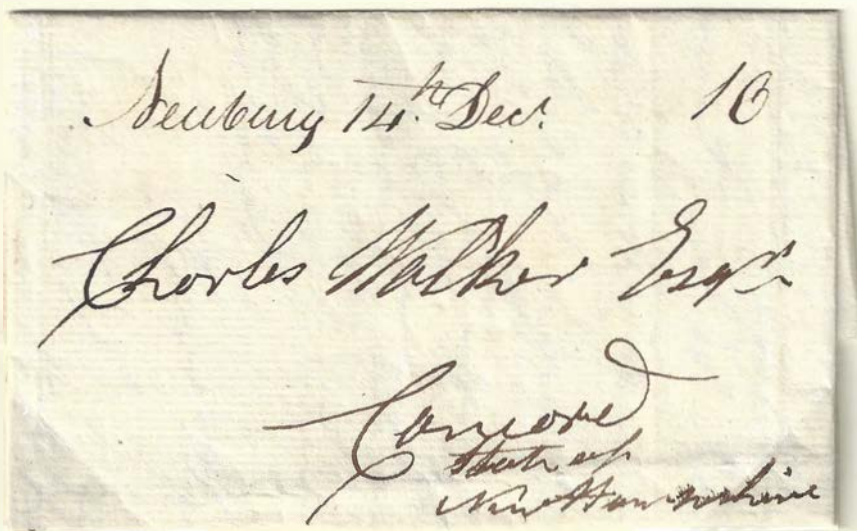 Newbury 14th Decr. 10
Charles Walker Esqr
Concord
State of
New Hampshire